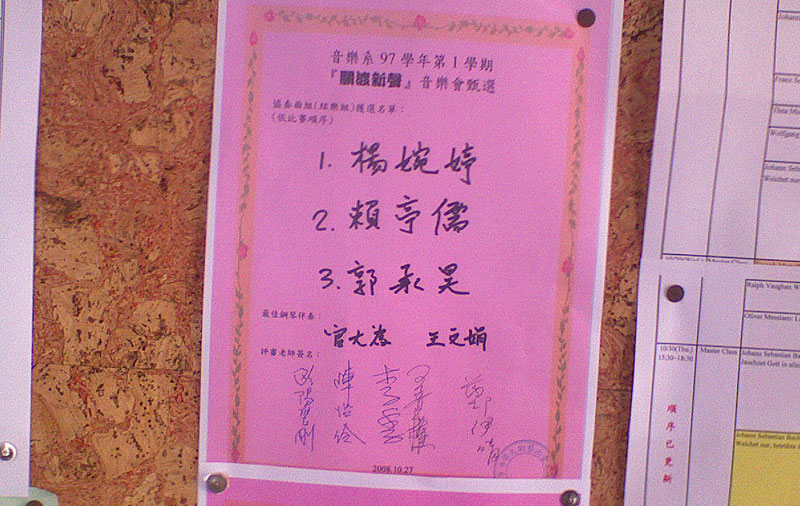 音樂系97學年第1學期
『關渡新聲』音樂會甄選
協奏曲組(絃樂組)獲選名單：
(依比賽順序)
1. 楊婉婷
2. 賴亭儒
3. 郭承昊
最佳鋼琴伴奏：
官大為 王文娟
評審老師簽名：
2008.10.27
Johann
Franz S
Wolfgang
Johann Seba
Weichet nur,
Ralph Vaughan W
Oliver Messiaen: L
10/30(Thu.)
15:30~18:30
Master Class
Johann Sebastian Ba
Jauchzet Gott in alle
順序已更新
Johann Sebastian Bac
Weichet nur, betrübte